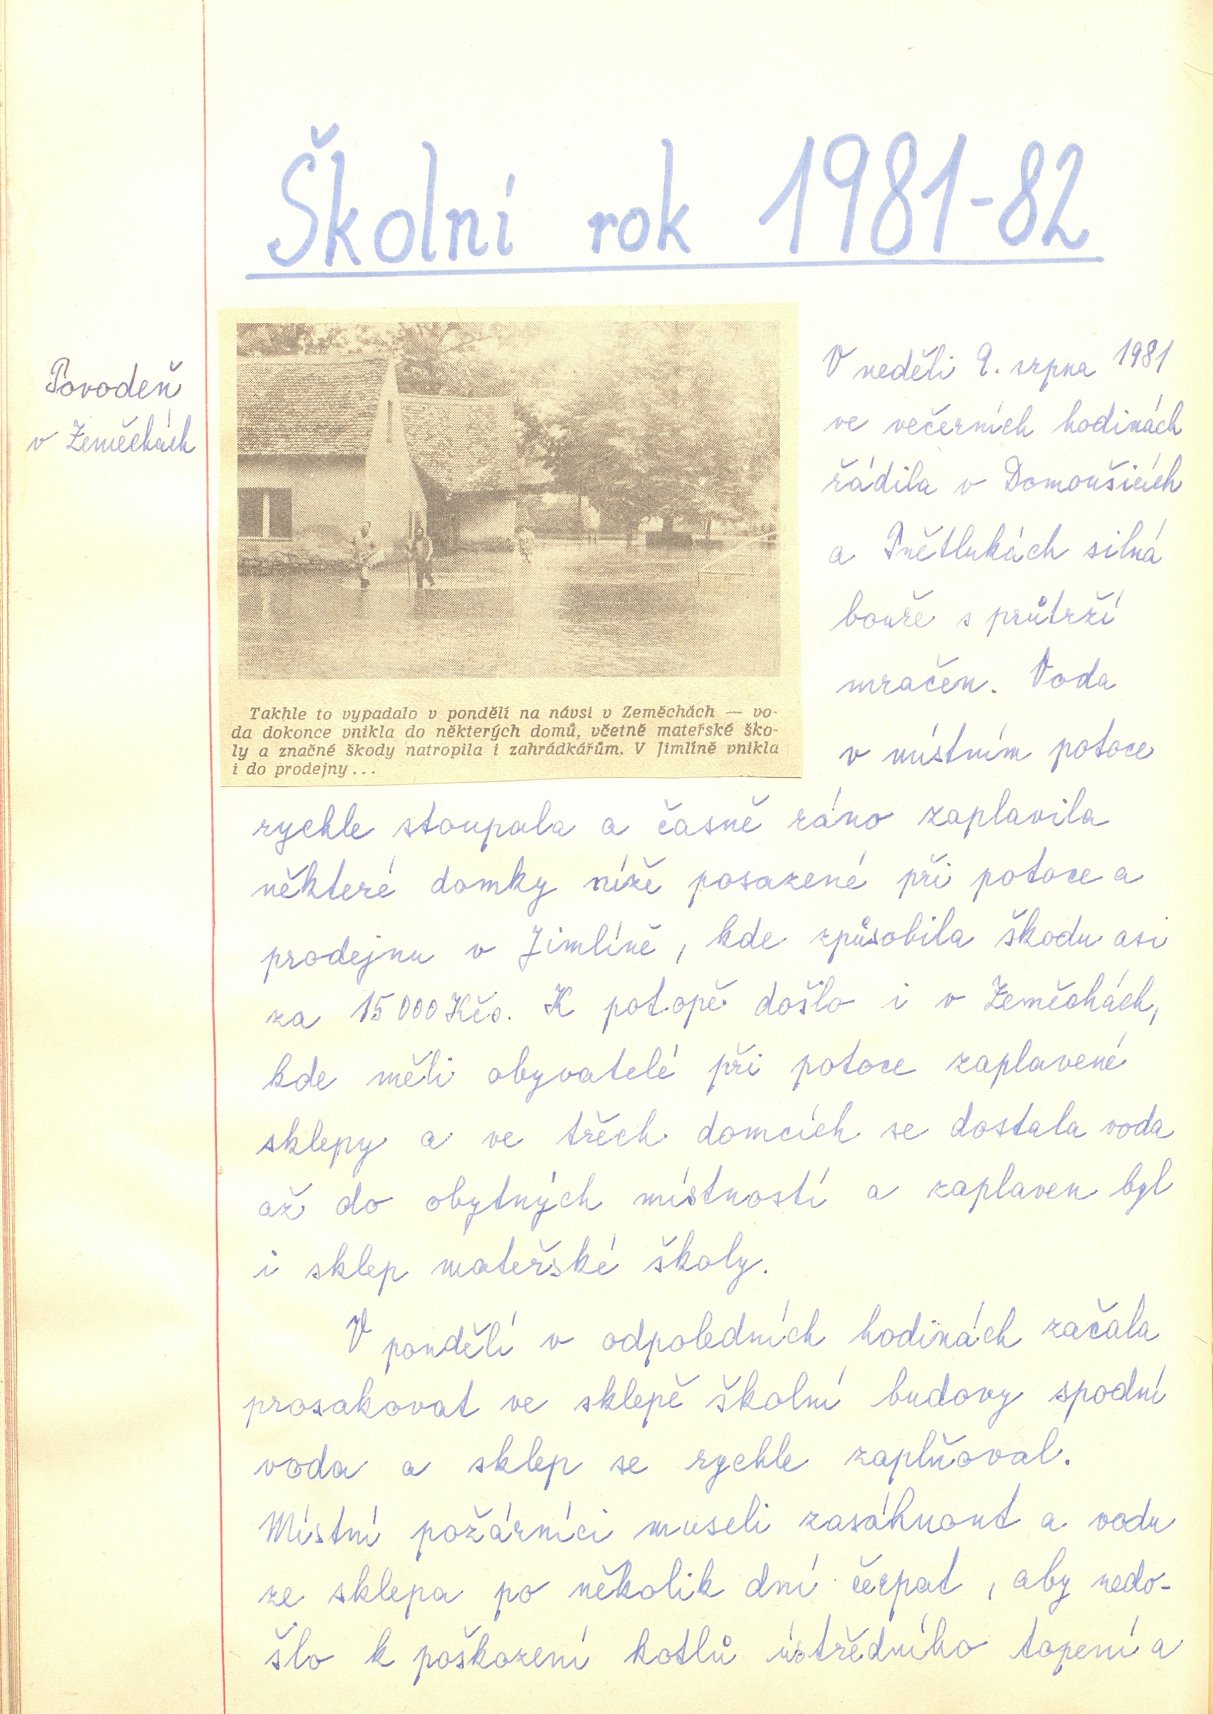 Školní rok 1981-82
Povodeň
v Zeměchách
Takhle to vypadalo v pondělí na návsi v Zeměchách — vo-
da dokonce vnikla do některých domů, včetně mateřské ško-
ly a značné škody natropila i zahrádkářům. V Jimlíně vnikla
i do prodejny...
V neděli 9. srpna 1981
ve večerních hodinách
řádila v Domoušicích
a Pnětlukách silná
bouře s průtrží
mračen. Voda
v místním potoce
rychle stoupala a časně ráno zaplavila
některé domky níže posazené při potoce a
prodejnu v Jimlíně, kde způsobila škodu asi
za 15 000 Kčs. K potopě došlo i v Zeměchách,
kde měli obyvatelé při potoce zaplavené
sklepy a ve třech domcích se dostala voda
až do obytných místností a zaplaven byl
i sklep mateřské školy.
V pondělí v odpoledních hodinách začala
prosakovat ve sklepě školní budovy spodní
voda a sklep se rychle zaplňoval.
Místní požárníci museli zasáhnout a vodu
ze sklepa po několik dní čerpat, aby nedo-
šlo k poškození kotlů ústředního topení a